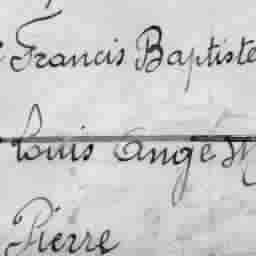 Francis Baptiste
Louis Ange
Pierre